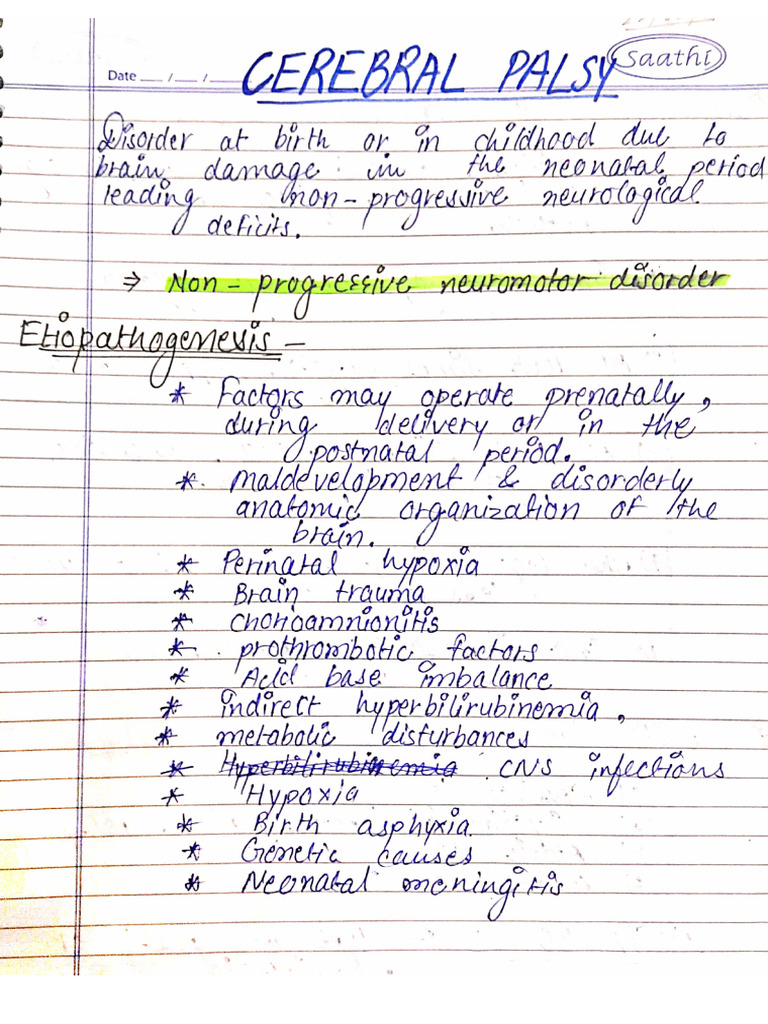 Saathi
Date __ / __ / __
CEREBRAL PALSY
Disorder at birth or in childhood due to
brain damage in the neonatal period
leading non-progressive neurological
deficits.
⇒ Non-progressive neuromotor disorder
Etiopathogenesis -
* Factors may operate prenatally,
during delivery or in the
postnatal period.
* maldevelopment & disorderly
anatomic organization of the
brain.
* Perinatal hypoxia
* Brain trauma
* Chorioamnionitis
* prothrombotic factors
* Acid base imbalance
* indirect hyperbilirubinemia,
* metabolic disturbances
* Hyperbilirubinemia CNS infections
* Hypoxia
* Birth asphyxia.
* Genetic causes
* Neonatal meningitis